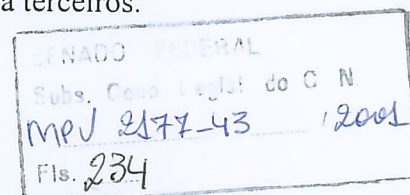 a terceiros.
SENADO FEDERAL
Subs. Coord. Legisl. do C N
MPV 2177-43 / 2001
Fls. 234